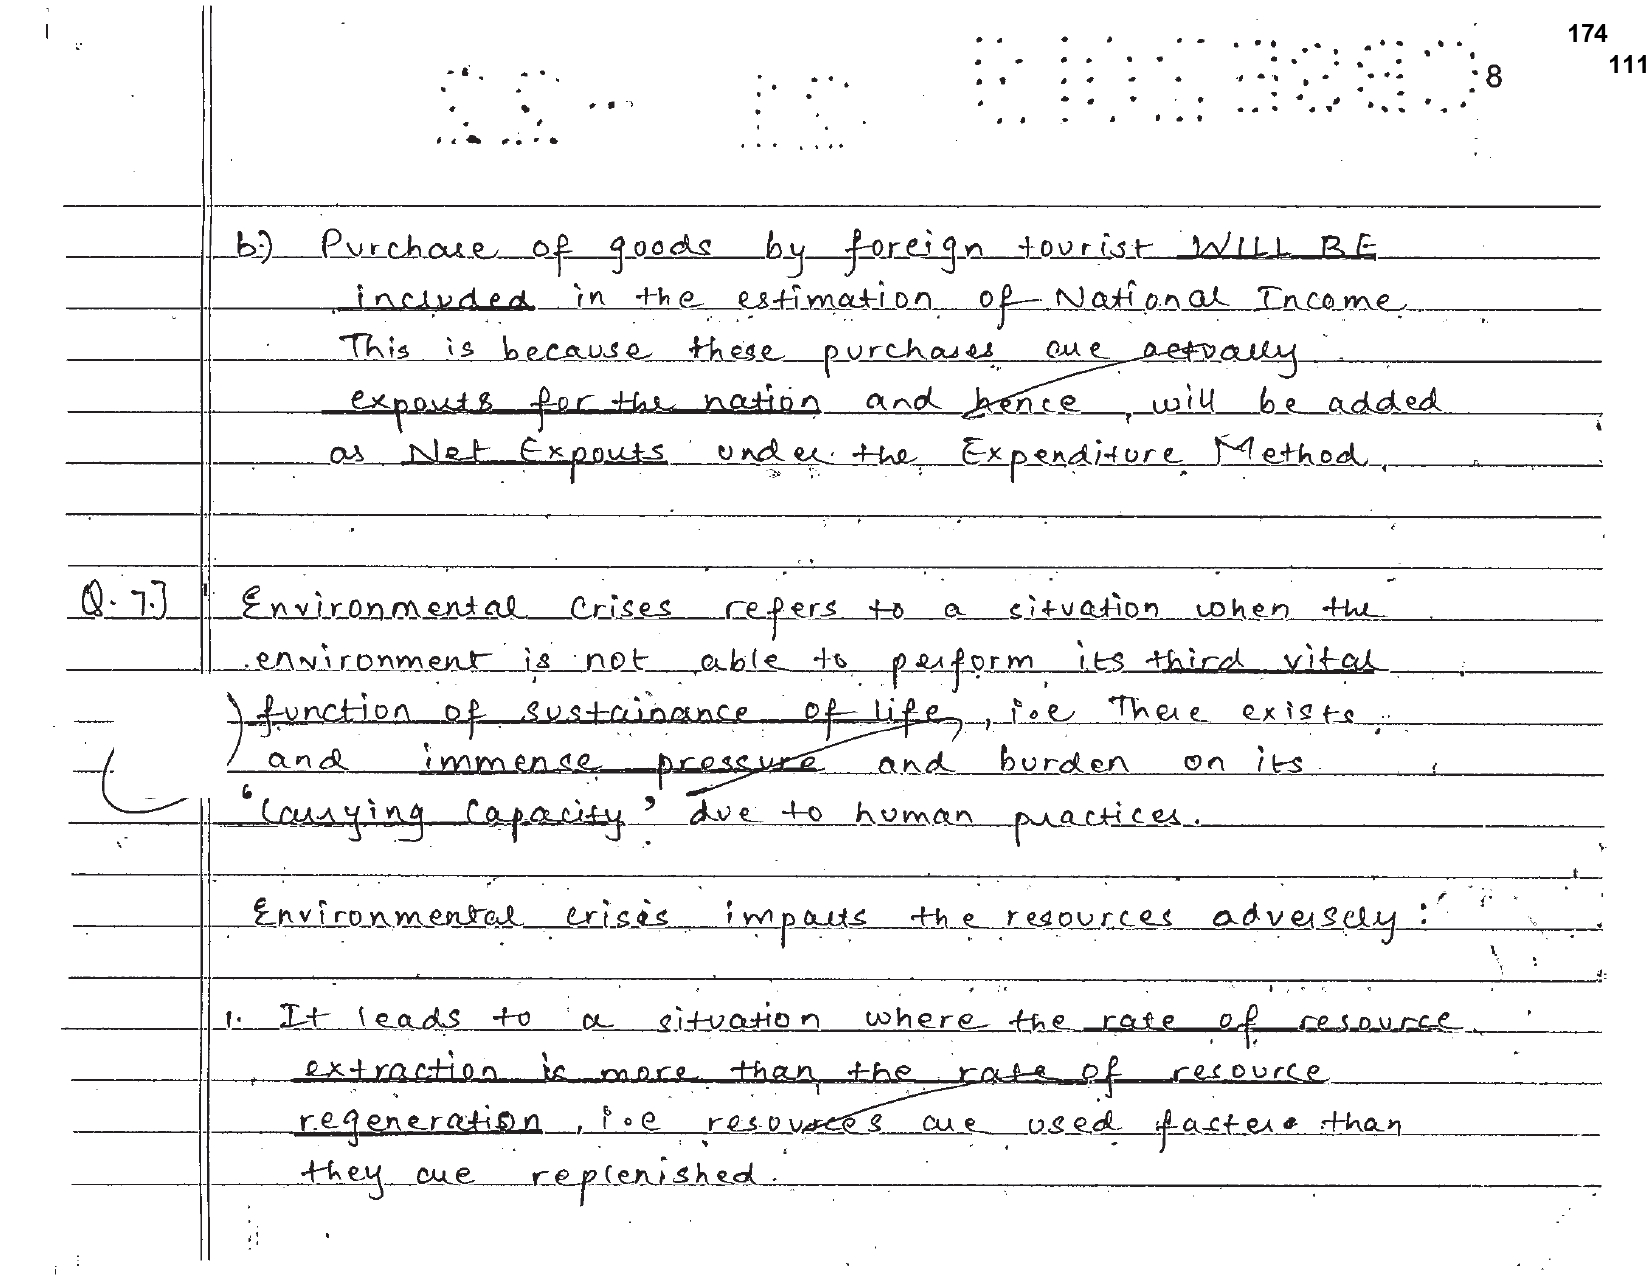 174
111
8
b.) Purchase of goods by foreign tourist WILL BE
included in the estimation of National Income.
This is because these purchases are actually
exports for the nation and hence, will be added
as Net Exports under the Expenditure Method.
Q. 7.] Environmental Crises refers to a situation when the
environment is not able to perform its third vital
function of sustainance of life, i.e There exists
and immense pressure and burden on its
'Carrying Capacity' due to human practices.
Environmental crisis impacts the resources adversely:
1. It leads to a situation where the rate of resource
extraction is more than the rate of resource
regeneration, i.e resources are used faster than
they are replenished.